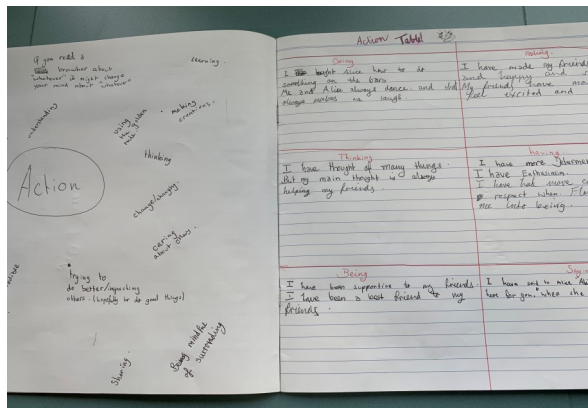 if you read a
brouchor about
"whatever" it might change
your mind about "whatever"
learning.
understanding
using
the golden
rule.
making
creations.
thinking
Action
change/changing
caring
about others.
trying to
do better/impacting
others. (hopefully to do good things)
Sharing.
Being mindful
of surrounding
Action Table!
Doing
I taught Alice how to do
something on the bars
Me and Alice always dance. and that
always makes me laugh.
I have made my friends
and happy and
My friends have ma
feel excited and
Thinking
I have thought of many things.
But my main thought is always
helping my friends.
Having
I have more determen
I have Enthusiasm.
I have had more
respect when
Being
I have been supportive to my friends.
I have been a best friend to my
friends.
I have said to
here for you," when she